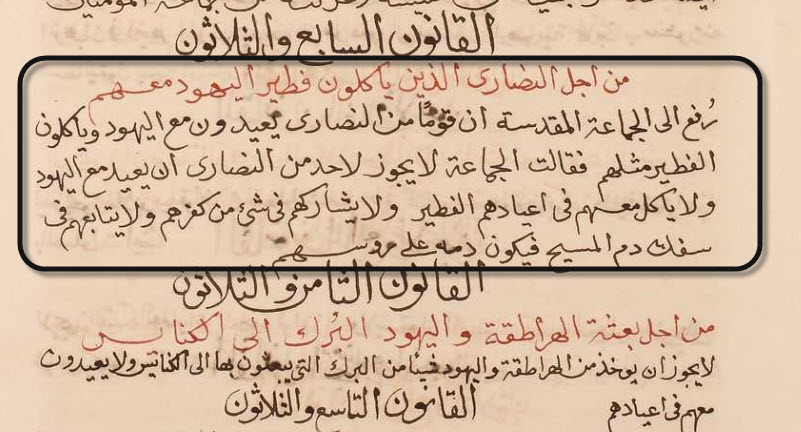 القانون السابع والثلاثون
من اجل النصارى الذين ياكلون فطير اليهود معهم
رُفع الى الجماعة المقدسة ان قومًا من النصارى يعيدون مع اليهود وياكلون
الفطير مثلهم فقالت الجماعة لا يجوز لاحد من النصارى ان يعيد مع اليهود
ولا ياكل معهم فى اعيادهم الفطير ولا يشاركهم فى شئ من كفرهم ولا يتابعهم فى
سفك دم المسيح فيكون دمه على روسهم
القانون الثامن والثلاثون
من اجل بعثة الهراطقة واليهود البُرك الى الكنائس
لا يجوز ان يوخذ من الهراطقة واليهود شيئا من البرك التى يبعثون بها الى الكنائس ولا يعيدون
معهم فى اعيادهم
القانون التاسع والثلاثون